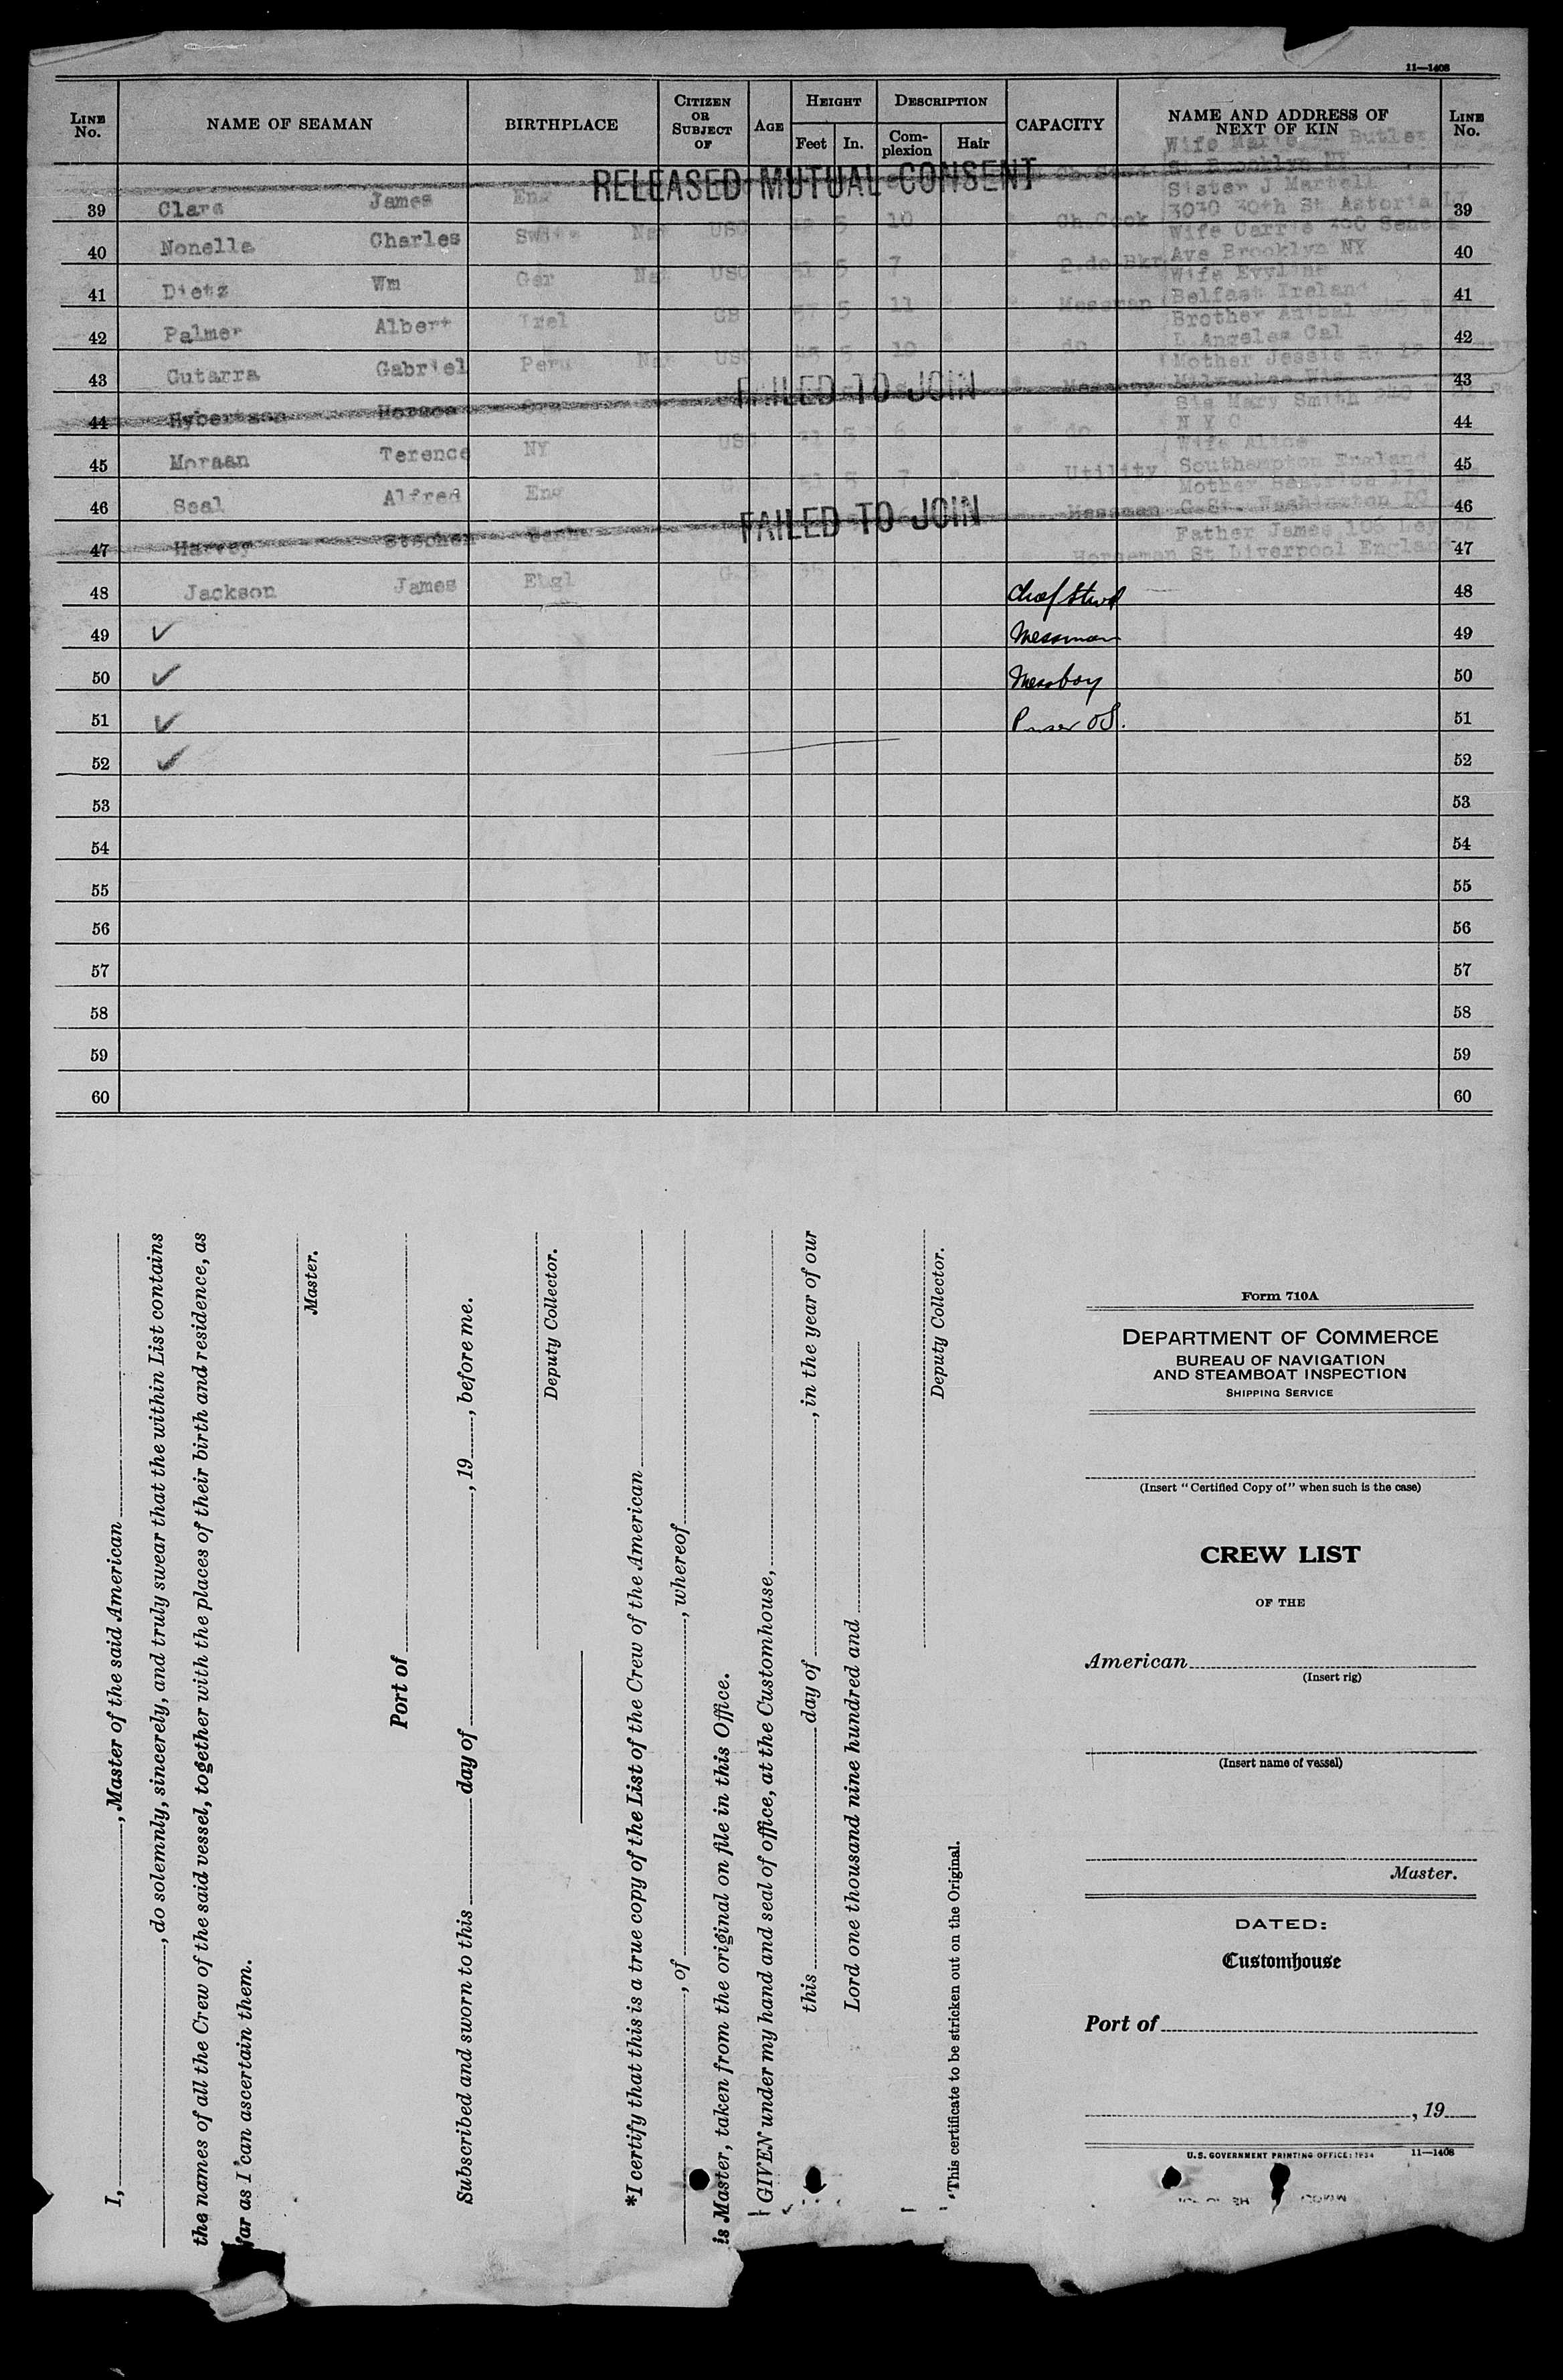 11—1408
LINE No. NAME OF SEAMAN BIRTHPLACE CITIZEN OR SUBJECT OF AGE HEIGHT Feet In. DESCRIPTION Complexion Hair CAPACITY NAME AND ADDRESS OF NEXT OF KIN LINE No.
Wife Marie Butler
St Brooklyn NY
RELEASED MUTUAL CONSENT
Sister J Martell
39 Clare James Eng 5 10 Ch.Cook 3030 30th St Astoria LI 39
Wife Carrie 300 Seneca
40 Nonella Charles Swiss Nat USC 5 7 Ave Brooklyn NY 40
Wife Evyline
41 Dietz Wm Ger Nat USC 5 11 Messman Belfast Ireland 41
Brother Anibal
42 Palmer Albert Irel GB 37 5 10 do L Angeles Cal 42
Mother Jessie
43 Gutarra Gabriel Peru Nat USC 5 Milwaukee Wis 43
FAILED TO JOIN
Sis Mary Smith
44 Hybertson Horace USC 5 6 do N Y C 44
Wife Alice
45 Moraan Terence NY 5 7 Utility Southampton England 45
Mother Beatrice
46 Seal Alfred Eng Messman C St. Washington DC 46
FAILED TO JOIN
Father James 106
47 Harvey Stephen Horseman St Liverpool England 47
48 Jackson James Engl Chief Stwd 48
49 ✓ Messman 49
50 ✓ Messboy 50
51 ✓ Purser OS. 51
52 ✓ 52
53 53
54 54
55 55
56 56
57 57
58 58
59 59
60 60
I, , Master of the said American
, do solemnly, sincerely, and truly swear that the within List contains
the names of all the Crew of the said vessel, together with the places of their birth and residence, as
far as I can ascertain them.
Master.
Port of
Subscribed and sworn to this day of , 19 , before me.
Deputy Collector.
*I certify that this is a true copy of the List of the Crew of the American
, of , whereof
is Master, taken from the original on file in this Office.
GIVEN under my hand and seal of office, at the Customhouse,
this day of , in the year of our
Lord one thousand nine hundred and
Deputy Collector.
*This certificate to be stricken out on the Original.
Form 710A
DEPARTMENT OF COMMERCE
BUREAU OF NAVIGATION
AND STEAMBOAT INSPECTION
SHIPPING SERVICE
(Insert "Certified Copy of" when such is the case)
CREW LIST
OF THE
American
(Insert rig)
(Insert name of vessel)
Master.
DATED:
Customhouse
Port of
, 19
U.S. GOVERNMENT PRINTING OFFICE: 1934 11—1408